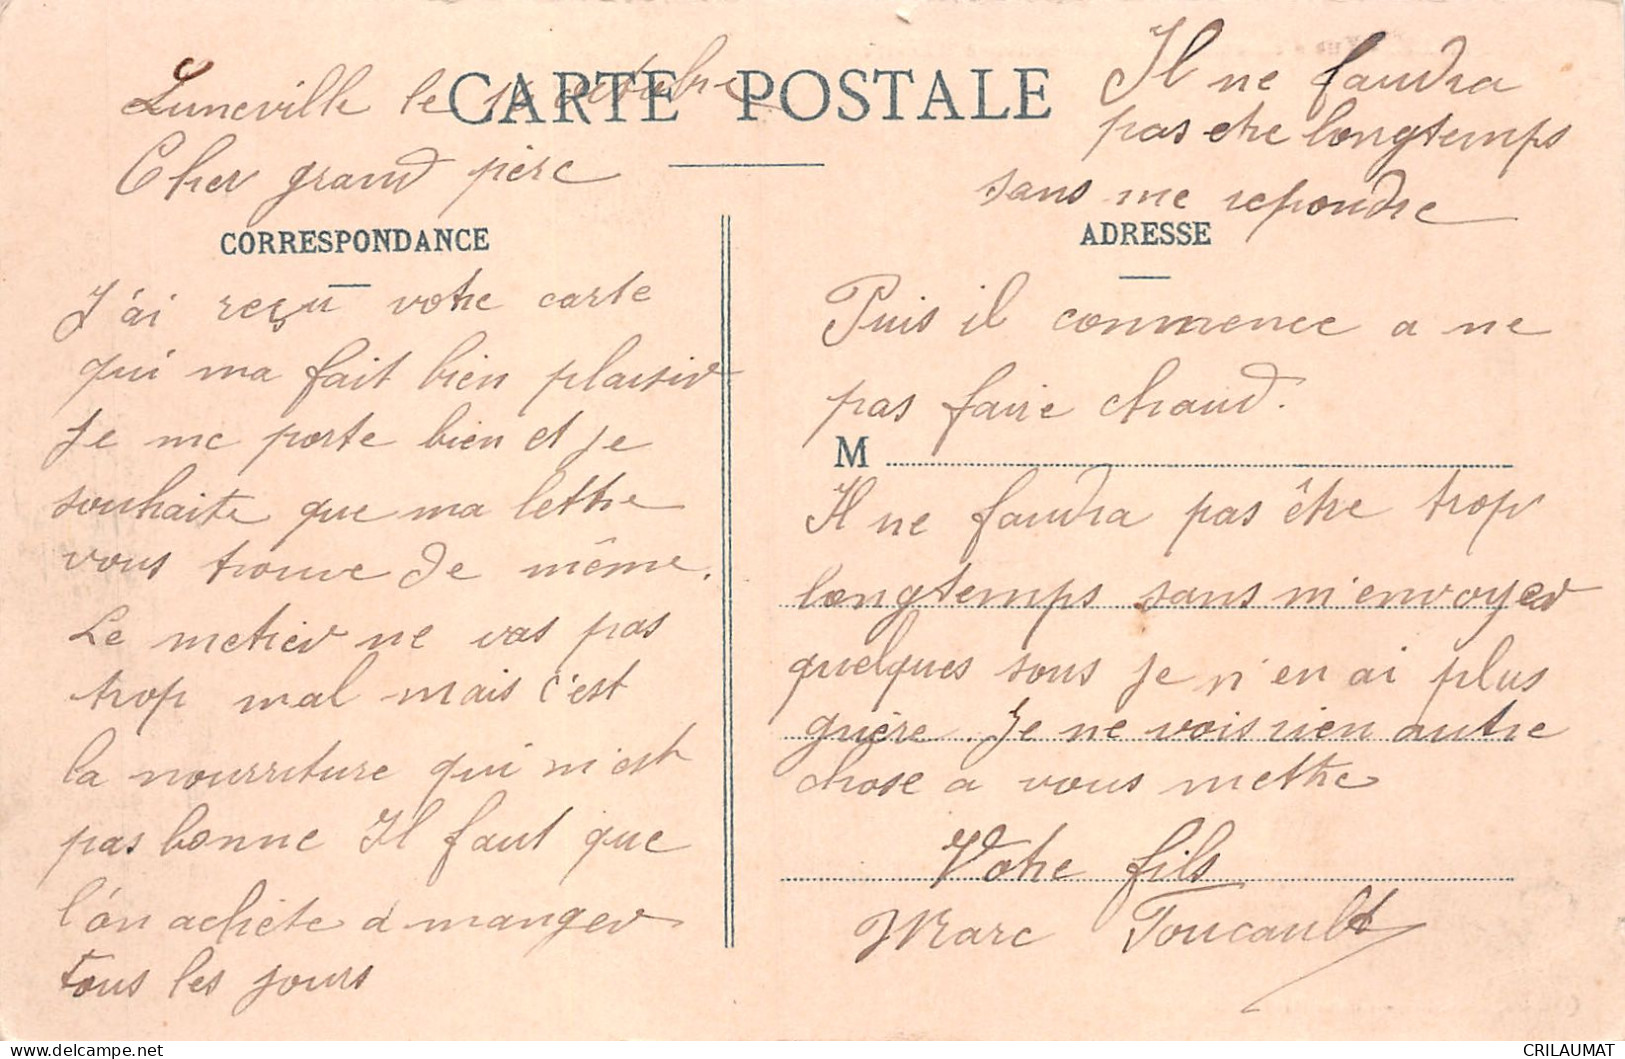 Luneville le octobre
CARTE POSTALE
Cher grand père
CORRESPONDANCE
J'ai reçu votre carte
qui ma fait bien plaisir
je me porte bien et je
souhaite que ma lettre
vous trouve de même.
Le metier ne vas pas
trop mal mais c'est
la nourriture qui n'est
pas bonne Il faut que
l'on achète a manger
tous les jours
Il ne faudra
pas etre longtemps
sans me repondre
ADRESSE
Puis il commence a ne
pas faire chaud.
M
Il ne faudra pas être trop
longtemps sans m'envoyer
quelques sous je n'en ai plus
guère. Je ne vois rien autre
chose a vous mettre
Votre fils
Marc Foucault
CRILAUMAT